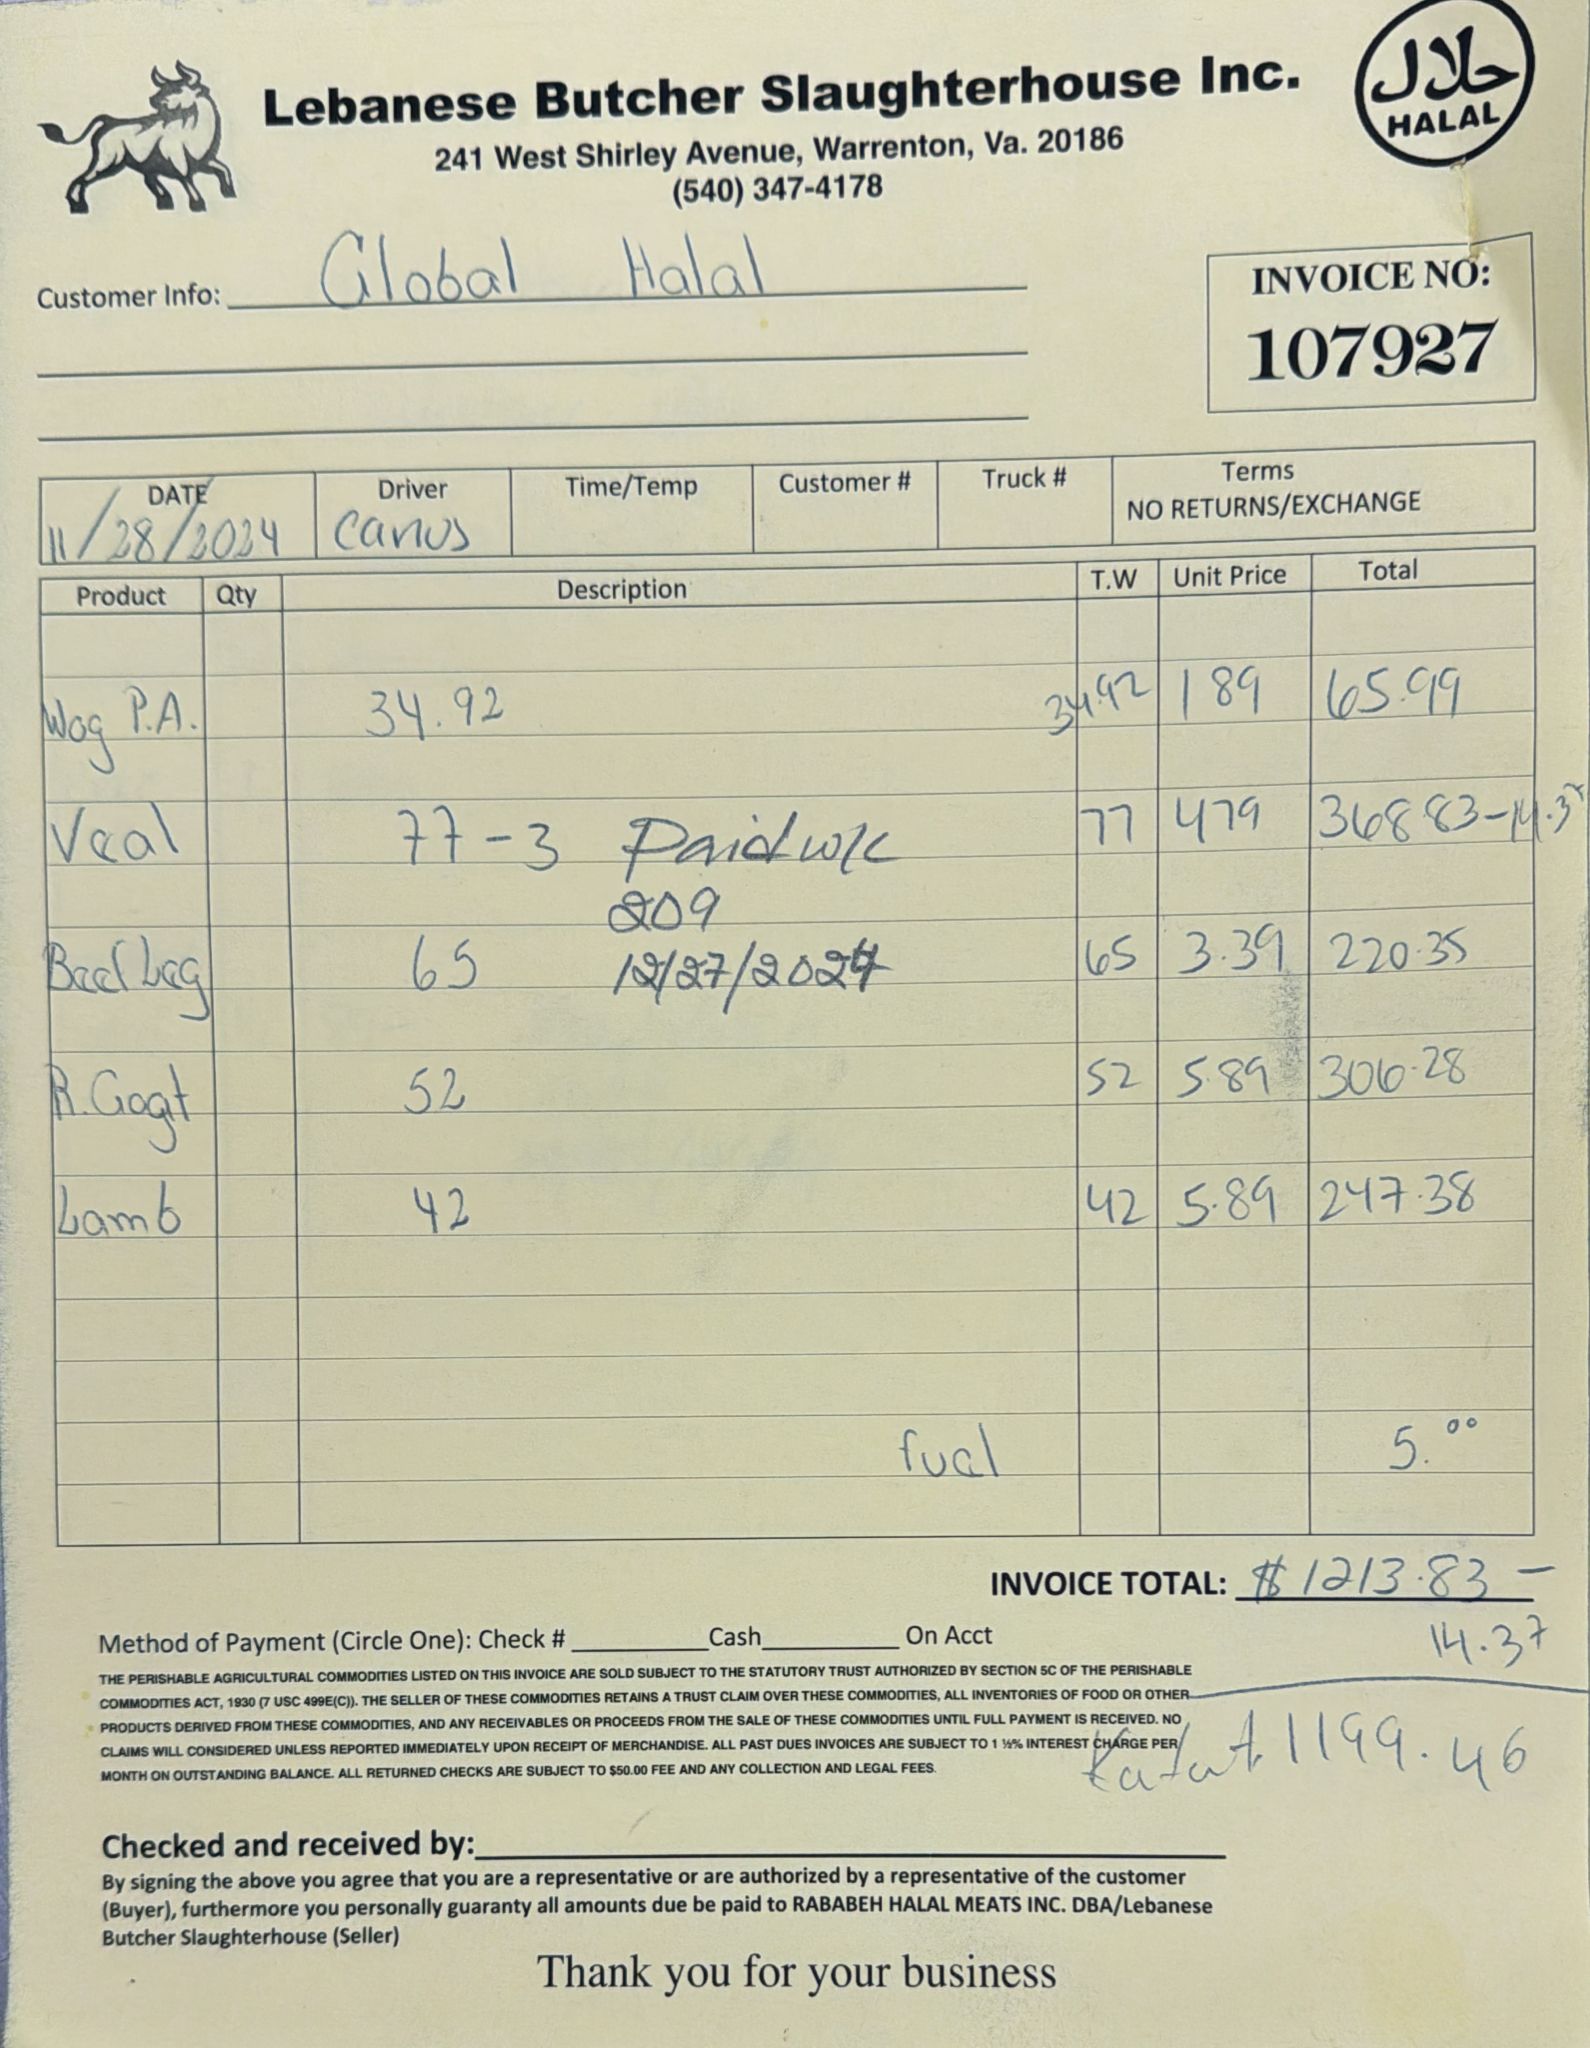 Lebanese Butcher Slaughterhouse Inc.
241 West Shirley Avenue, Warrenton, Va. 20186
(540) 347-4178
حلال
HALAL
Customer Info: Global Halal
INVOICE NO:
107927
DATE Driver Time/Temp Customer # Truck # Terms
NO RETURNS/EXCHANGE
11/28/2024 Carlos
Product Qty Description T.W Unit Price Total
Wog P.A. 34.92 34.92 189 65.99
Veal 77-3 Paid w/c 77 479 368 83-14.37
209
Beef Leg 65 12/27/2024 65 3.39 220.35
R. Goat 52 52 5.89 306.28
Lamb 42 42 5.89 247.38
fuel 5.00
INVOICE TOTAL: $1213.83 -
14.37
Method of Payment (Circle One): Check # Cash On Acct
THE PERISHABLE AGRICULTURAL COMMODITIES LISTED ON THIS INVOICE ARE SOLD SUBJECT TO THE STATUTORY TRUST AUTHORIZED BY SECTION 5C OF THE PERISHABLE
COMMODITIES ACT, 1930 (7 USC 499E(C)). THE SELLER OF THESE COMMODITIES RETAINS A TRUST CLAIM OVER THESE COMMODITIES, ALL INVENTORIES OF FOOD OR OTHER
PRODUCTS DERIVED FROM THESE COMMODITIES, AND ANY RECEIVABLES OR PROCEEDS FROM THE SALE OF THESE COMMODITIES UNTIL FULL PAYMENT IS RECEIVED. NO
CLAIMS WILL CONSIDERED UNLESS REPORTED IMMEDIATELY UPON RECEIPT OF MERCHANDISE. ALL PAST DUES INVOICES ARE SUBJECT TO 1 ½% INTEREST CHARGE PER
MONTH ON OUTSTANDING BALANCE. ALL RETURNED CHECKS ARE SUBJECT TO $50.00 FEE AND ANY COLLECTION AND LEGAL FEES.
1199.46
Checked and received by:
By signing the above you agree that you are a representative or are authorized by a representative of the customer
(Buyer), furthermore you personally guaranty all amounts due be paid to RABABEH HALAL MEATS INC. DBA/Lebanese
Butcher Slaughterhouse (Seller)
Thank you for your business